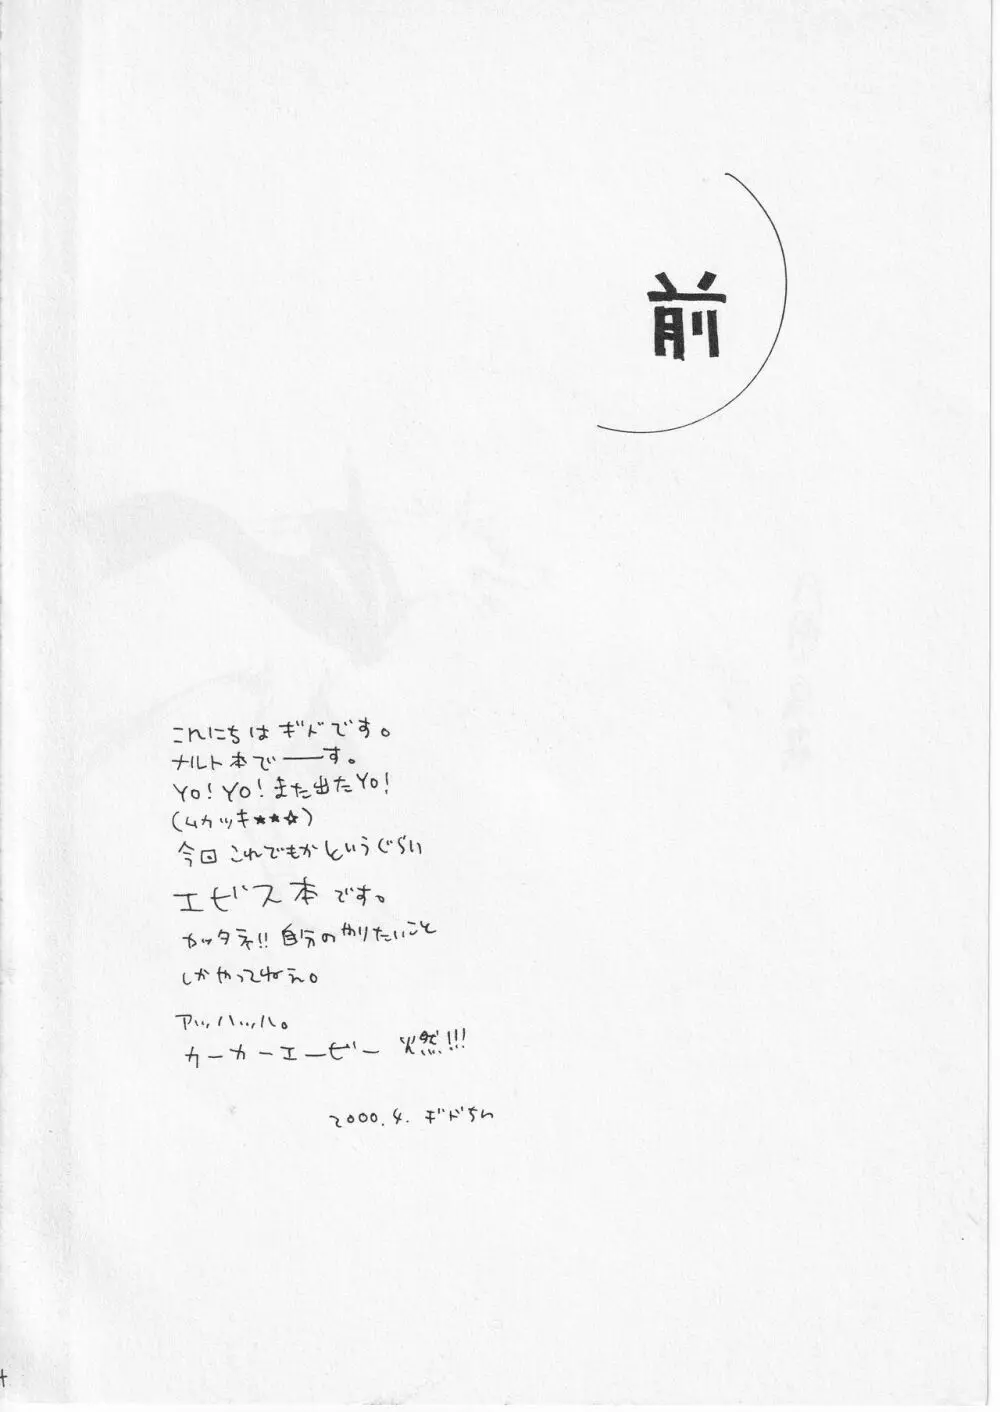 前
こんにちは ギド です。
ナルト本で――す。
YO! YO! また出たYO!
(ムカツキ★★☆)
今回 これでもかというぐらい
エビス本 です。
カッタネ!! 自分のやりたいこと
しかやってねえ。
アッハッハ。
カーカーエービー 燃!!!
2000.4. ギドちん